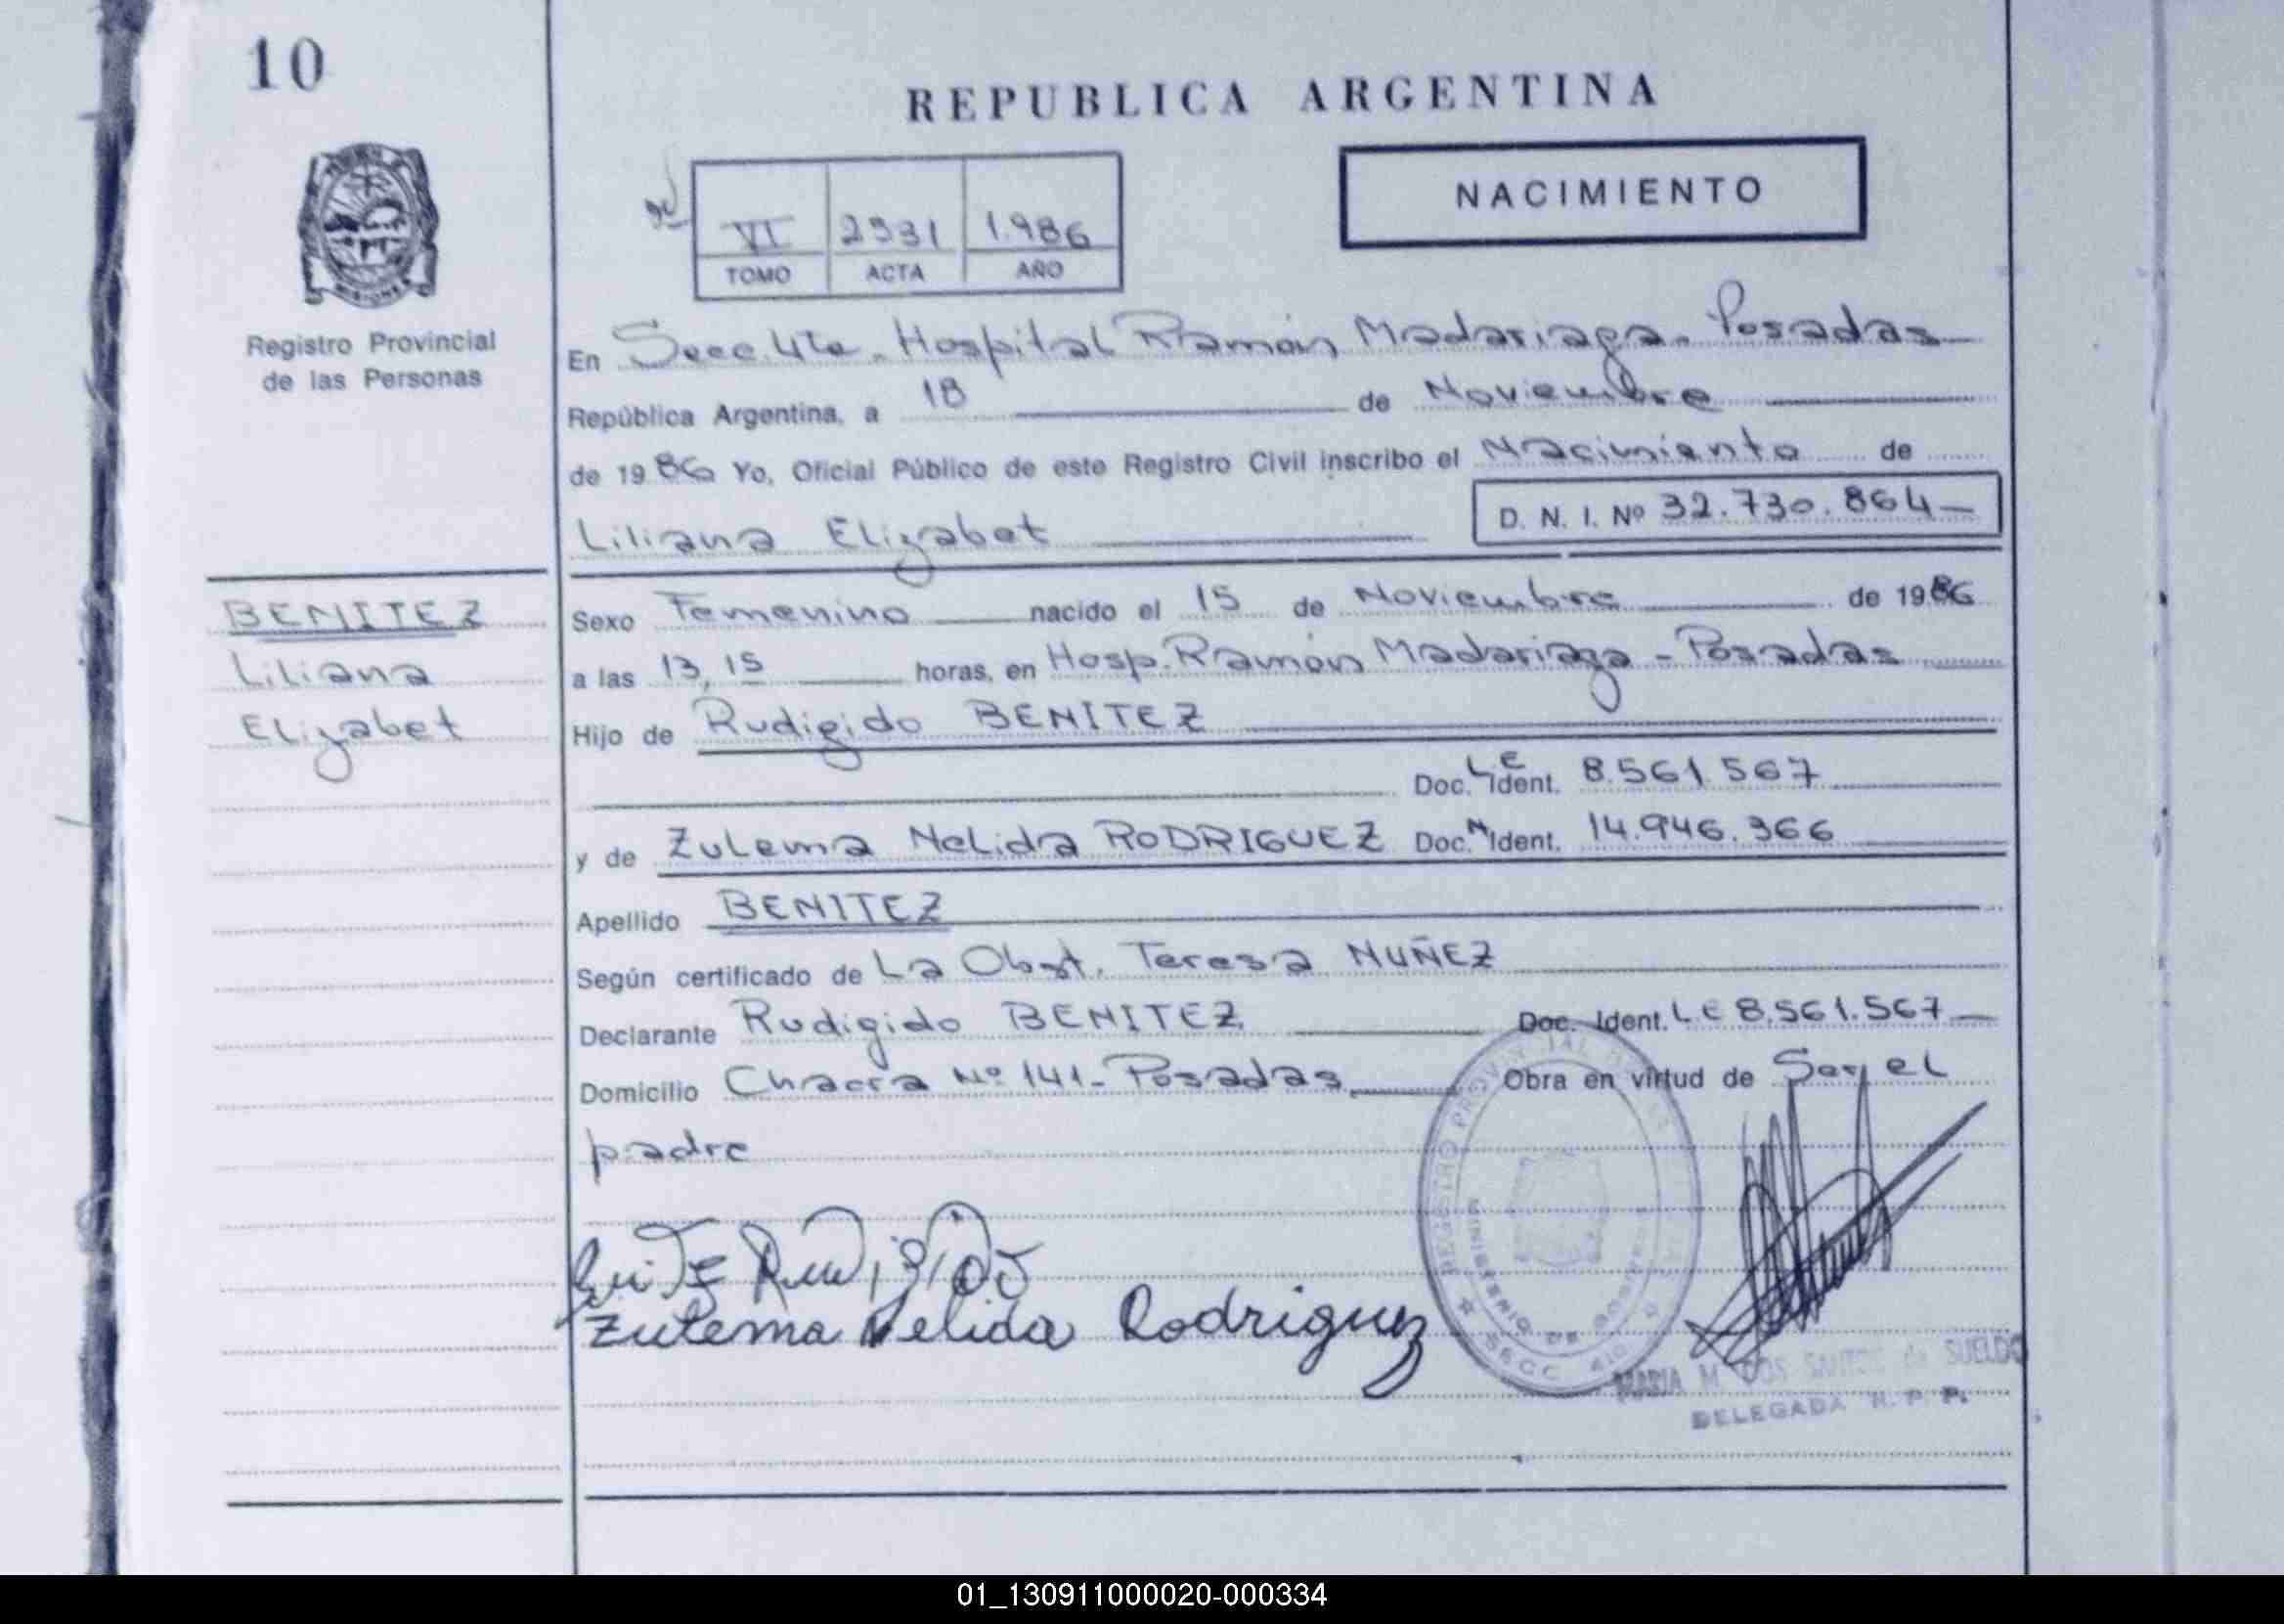 10
REPUBLICA ARGENTINA
NACIMIENTO
VI 2931 1.986
TOMO ACTA AÑO
MISIONES
Registro Provincial
de las Personas
En Secc. 4ta. Hospital Ramón Madariaga. Posadas
República Argentina, a 18 de Noviembre
de 1986 Yo, Oficial Público de este Registro Civil inscribo el Nacimiento de
Liliana Elizabet D. N. I. Nº 32.730.864
BENITEZ
Liliana
Elizabet
Sexo Femenino nacido el 15 de Noviembre de 1986
a las 13,15 horas, en Hosp. Ramón Madariaga - Posadas
Hijo de Rudigido BENITEZ
Doc. LE Ident. 8.561.567
y de Zulema Nelida RODRIGUEZ Doc. N Ident. 14.946.366
Apellido BENITEZ
Según certificado de La Obst. Teresa NUÑEZ
Declarante Rudigido BENITEZ Doc. Ident. LE 8.561.567
Domicilio Chacra Nº 141 - Posadas Obra en virtud de Ser el
padre
Rudigido
Zulema Nelida Rodriguez
REGISTRO PROVINCIAL DE LAS
MINISTERIO DE GOBIERNO
SECC. 4ta
MARIA M. DOS SANTOS de SUELDO
DELEGADA R. P. P.
01_130911000020-000334